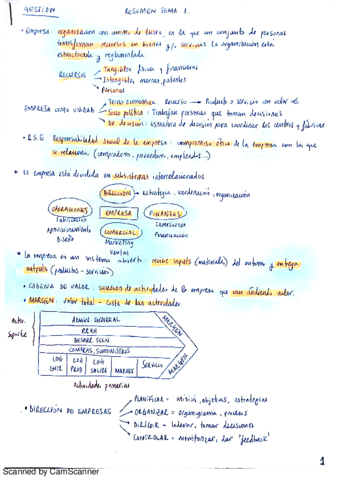 GESTIÓN RESUMEN TEMA 1.
· Empresa: organización con ánimo de lucro, en la que un conjunto de personas
transforman recursos en bienes y/o servicios. La organización está
estructurada y reglamentada.
RECURSOS
Tangibles: físicos y financieros
Intangibles: marcas, patentes
Personal
EMPRESA COMO UNIDAD
Tecno económica: Recurso → Producto o servicio con valor €
Socio política: Trabajan personas que toman decisiones
De decisión: estructura de decisión para coordinar
· R.S.E Responsabilidad Social de la empresa: compromiso ético de la empresa con los que
se relaciona (compradores, proveedores, empleados...)
· La empresa está dividida en subsistemas interrelacionados
DIRECCIÓN → estrategia, coordinación, organización
OPERACIONES EMPRESA FINANZAS
Fabricación
Aprovisionamiento
Diseño
Inversiones
Financiación
COMERCIAL
Marketing
Ventas
· La empresa es un sistema abierto: recibe inputs (materiales) del entorno y entrega
outputs (productos - servicios)
· CADENA DE VALOR: sucesión de actividades de la empresa que van añadiendo valor.
· MARGEN: Valor total - coste de las actividades
Activ.
Soporte
ADMÓN GENERAL
RRHH
DESARR. TECN.
COMPRAS, SUMINISTROS
LOG ENTR
LOG PROD
LOG SALIDE
MARKET
SERVICIO
MARGEN
MARGEN
Actividades primarias
· DIRECCIÓN DE EMPRESAS
PLANIFICAR = misión, objetivos, estrategias
ORGANIZAR = organigrama, procesos
DIRIGIR = liderar, tomar decisiones
CONTROLAR = monitorizar, dar 'feedback'
1
Scanned by CamScanner